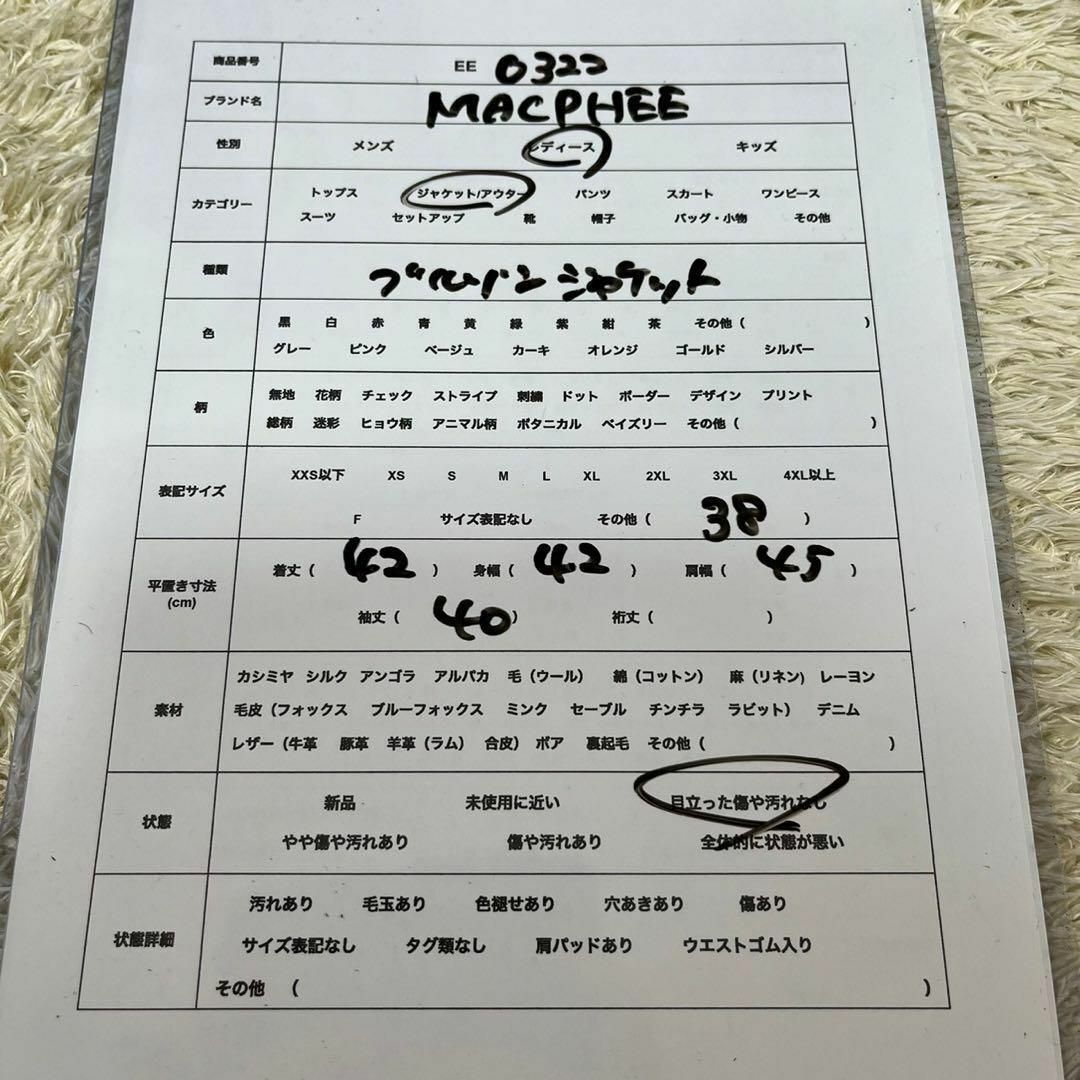 商品番号 EE 0322
ブランド名 MACPHEE
性別 メンズ レディース キッズ
カテゴリー トップス ジャケット/アウター パンツ スカート ワンピース
スーツ セットアップ 靴 帽子 バッグ・小物 その他
種類 ブルゾン ジャケット
色 黒 白 赤 青 黄 緑 紫 紺 茶 その他 ( )
グレー ピンク ベージュ カーキ オレンジ ゴールド シルバー
柄 無地 花柄 チェック ストライプ 刺繍 ドット ボーダー デザイン プリント
総柄 迷彩 ヒョウ柄 アニマル柄 ボタニカル ペイズリー その他 ( )
表記サイズ XXS以下 XS S M L XL 2XL 3XL 4XL以上
F サイズ表記なし その他 ( 38 )
平置き寸法 (cm) 着丈 ( 42 ) 身幅 ( 42 ) 肩幅 ( 45 )
袖丈 ( 40 ) 裄丈 ( )
素材 カシミヤ シルク アンゴラ アルパカ 毛（ウール） 綿（コットン） 麻（リネン) レーヨン
毛皮（フォックス ブルーフォックス ミンク セーブル チンチラ ラビット） デニム
レザー（牛革 豚革 羊革（ラム） 合皮） ボア 裏起毛 その他 ( )
状態 新品 未使用に近い 目立った傷や汚れなし
やや傷や汚れあり 傷や汚れあり 全体的に状態が悪い
状態詳細 汚れあり 毛玉あり 色褪せあり 穴あきあり 傷あり
サイズ表記なし タグ類なし 肩パッドあり ウエストゴム入り
その他 ( )